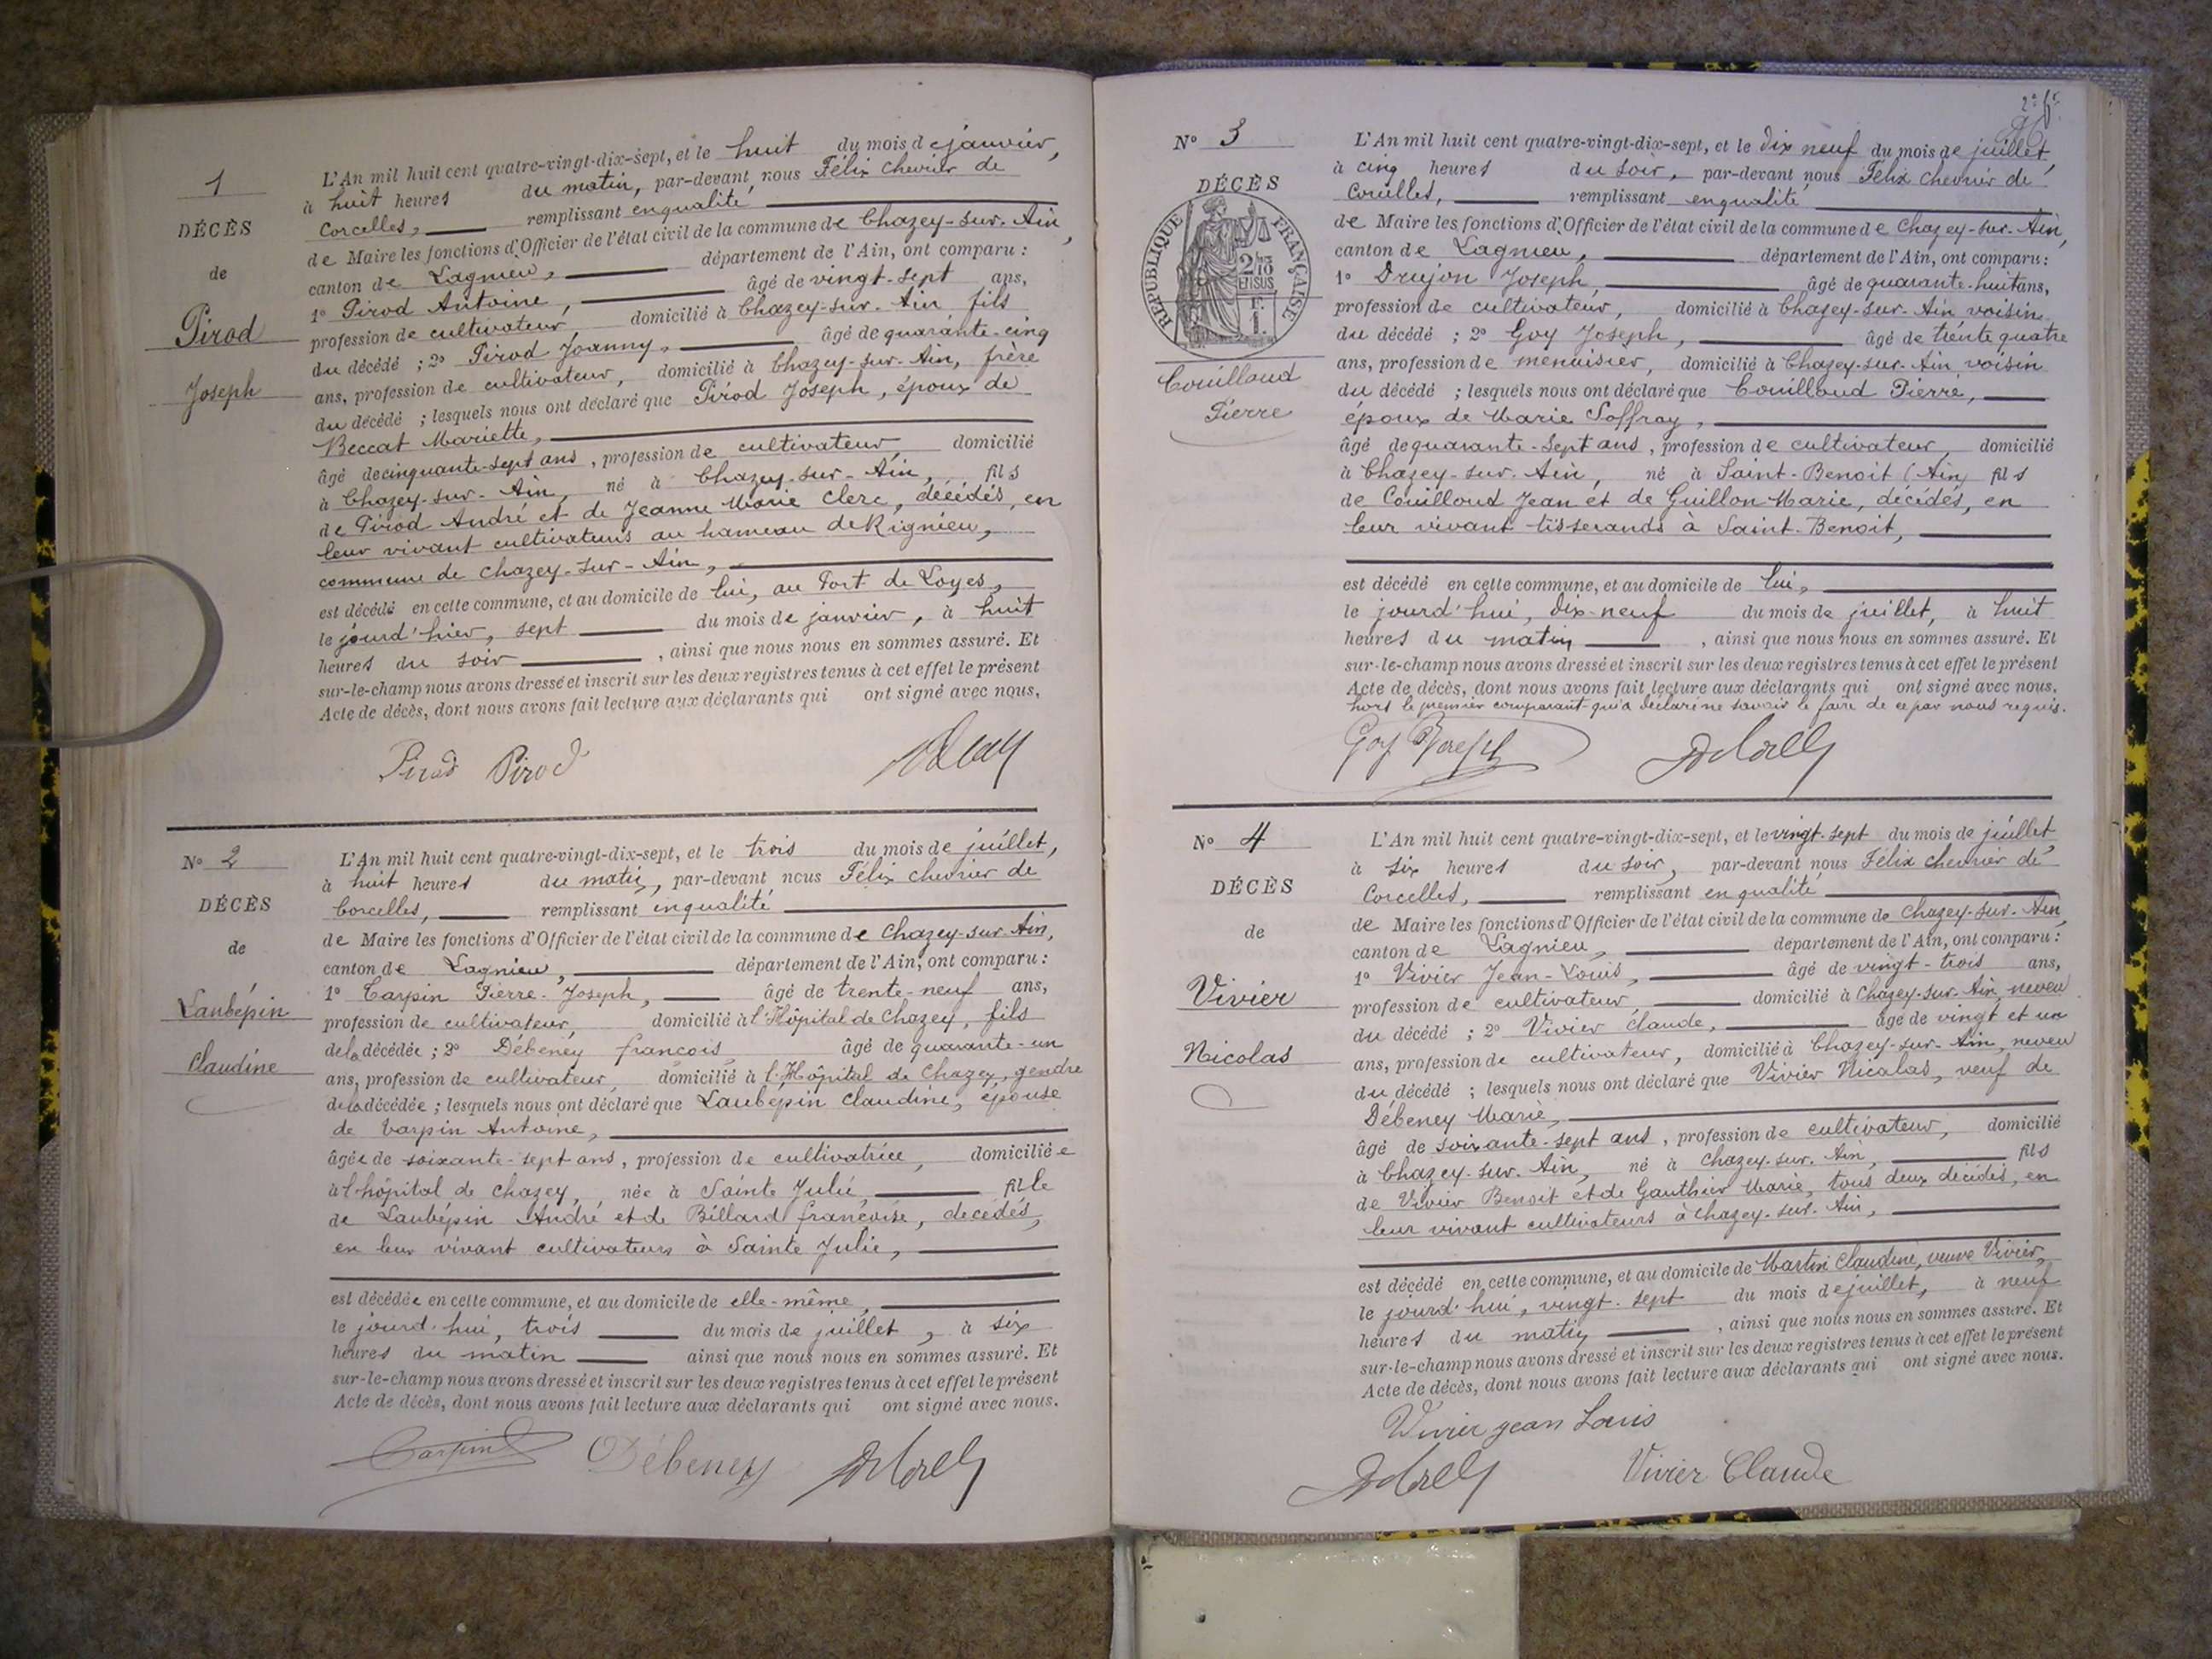 1
DÉCÈS
de
Pirod
Joseph
L'An mil huit cent quatre-vingt-dix-sept, et le huit du mois de janvier,
à huit heures du matin, par-devant nous Félix Chevrier de
Corcelles, remplissant en qualité
de Maire les fonctions d'Officier de l'état civil de la commune de Chazey-sur-Ain,
canton de Lagnieu, département de l'Ain, ont comparu :
1º Pirod Antoine, âgé de vingt-sept ans,
profession de cultivateur, domicilié à Chazey-sur-Ain fils
du décédé ; 2º Pirod Joanny, âgé de quarante-cinq
ans, profession de cultivateur, domicilié à Chazey-sur-Ain, frère
du décédé ; lesquels nous ont déclaré que Pirod Joseph, époux de
Beccat Mariette,
âgé de cinquante-sept ans, profession de cultivateur domicilié
à Chazey-sur-Ain, né à Chazey-sur-Ain, fils
de Pirod André et de Jeanne Marie Clerc, décédés, en
leur vivant cultivateurs au hameau de Rignieu,
commune de Chazey-sur-Ain,
est décédé en cette commune, et au domicile de lui, au Port de Loyes,
le jourd'hier, sept du mois de janvier, à huit
heures du soir, ainsi que nous nous en sommes assuré. Et
sur-le-champ nous avons dressé et inscrit sur les deux registres tenus à cet effet le présent
Acte de décès, dont nous avons fait lecture aux déclarants qui ont signé avec nous,
Pirod Pirod
Nº 2
DÉCÈS
de
Laubépin
Claudine
L'An mil huit cent quatre-vingt-dix-sept, et le trois du mois de juillet,
à huit heures du matin, par-devant nous Félix chevrier de
Corcelles, remplissant en qualité
de Maire les fonctions d'Officier de l'état civil de la commune de Chazey-sur-Ain,
canton de Lagnieu, département de l'Ain, ont comparu :
1º Carpin Pierre-Joseph, âgé de trente-neuf ans,
profession de cultivateur, domicilié à l'Hôpital de Chazey, fils
de la décédée ; 2º Débeney françois âgé de quarante-un
ans, profession de cultivateur, domicilié à l'Hôpital de Chazey, gendre
de la décédée ; lesquels nous ont déclaré que Laubépin Claudine, épouse
de Carpin Antoine,
âgée de soixante-sept ans, profession de cultivatrice, domiciliée
à l'hôpital de chazey, née à Sainte Julie, fille
de Laubépin André et de Billard françoise, décédés,
en leur vivant cultivateurs à Sainte Julie,
est décédée en cette commune, et au domicile de elle-même,
le jourd'hui, trois du mois de juillet, à six
heures du matin ainsi que nous nous en sommes assuré. Et
sur-le-champ nous avons dressé et inscrit sur les deux registres tenus à cet effet le présent
Acte de décès, dont nous avons fait lecture aux déclarants qui ont signé avec nous.
Carpin Débeney
Nº 3
DÉCÈS
RÉPUBLIQUE FRANÇAISE
2/10
EN SUS
F.
1.
Couilloud
Pierre
L'An mil huit cent quatre-vingt-dix-sept, et le dix neuf du mois de juillet,
à cinq heures du soir, par-devant nous Félix chevrier de
Corcelles, remplissant en qualité
de Maire les fonctions d'Officier de l'état civil de la commune de Chazey-sur-Ain,
canton de Lagnieu, département de l'Ain, ont comparu :
1º Drujon Joseph, âgé de quarante-huit ans,
profession de cultivateur, domicilié à Chazey-sur-Ain voisin
du décédé ; 2º Goy Joseph, âgé de trente quatre
ans, profession de menuisier, domicilié à Chazey-sur-Ain, voisin
du décédé ; lesquels nous ont déclaré que Couilloud Pierre,
époux de Marie Soffray,
âgé de quarante-sept ans, profession de cultivateur domicilié
à Chazey-sur-Ain, né à Saint-Benoit (Ain) fils
de Couilloud Jean et de Guillon Marie, décédés, en
leur vivant tisserands à Saint-Benoit,
est décédé en cette commune, et au domicile de lui,
le jourd'hui, dix-neuf du mois de juillet, à huit
heures du matin, ainsi que nous nous en sommes assuré. Et
sur-le-champ nous avons dressé et inscrit sur les deux registres tenus à cet effet le présent
Acte de décès, dont nous avons fait lecture aux déclarants qui ont signé avec nous,
hors le premier comparant qui a déclaré ne savoir le faire de ce par nous requis.
Goy Joseph
Nº 4
DÉCÈS
de
Vivier
Nicolas
L'An mil huit cent quatre-vingt-dix-sept, et le vingt-sept du mois de juillet,
à six heures du soir, par-devant nous Félix chevrier de
Corcelles, remplissant en qualité
de Maire les fonctions d'Officier de l'état civil de la commune de Chazey-sur-Ain,
canton de Lagnieu, département de l'Ain, ont comparu :
1º Vivier Jean-Louis, âgé de vingt-trois ans,
profession de cultivateur domicilié à Chazey-sur-Ain, neveu
du décédé ; 2º Vivier Claude, âgé de vingt et un
ans, profession de cultivateur, domicilié à Chazey-sur-Ain, neveu
du décédé ; lesquels nous ont déclaré que Vivier Nicolas, veuf de
Débeney Marie,
âgé de soixante-sept ans, profession de cultivateur, domicilié
à Chazey-sur-Ain, né à Chazey-sur-Ain, fils
de Vivier Benoit et de Gauthier Marie, tous deux décédés, en
leur vivant cultivateurs à Chazey-sur-Ain,
est décédé en cette commune, et au domicile de Martin Claudine, veuve Vivier,
le jourd'hui, vingt-sept du mois de juillet, à neuf
heures du matin, ainsi que nous nous en sommes assuré. Et
sur-le-champ nous avons dressé et inscrit sur les deux registres tenus à cet effet le présent
Acte de décès, dont nous avons fait lecture aux déclarants qui ont signé avec nous.
Vivier jean Louis
Vivier Claude